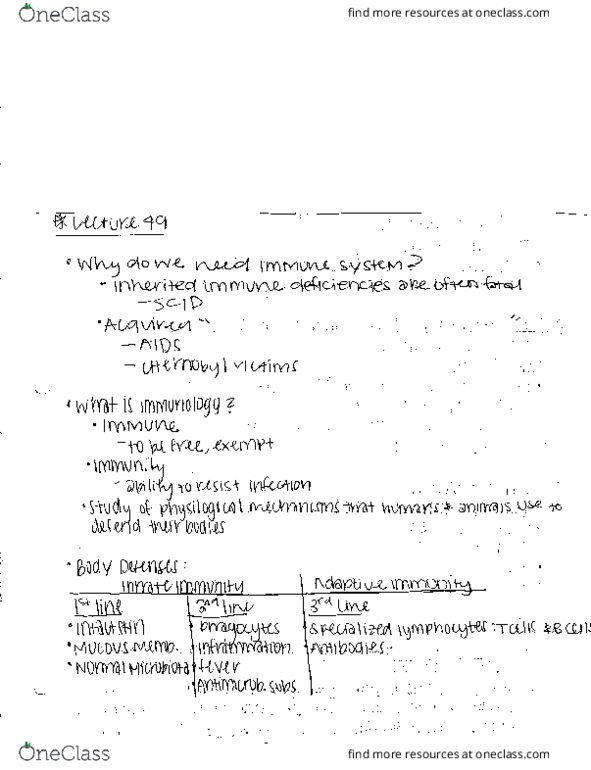 OneClass find more resources at oneclass.com
Lecture 49
• Why do we need immune system?
- Inherited immune deficiencies are often fatal
- SCID
• Acquired " "
- AIDS
- Chernobyl victims
• What is immunology?
• Immune
- to be free, exempt
• Immunity
- ability to resist infection
• Study of physilogical mechanisms that humans & animals use to
defend their bodies
• Body Defenses:
Innate immunity Adaptive immunity
1st line 2nd line 3rd line
• Intact skin phagocytes specialized lymphocytes: T cells & B cells
• Mucous memb. inflammation Antibodies
• Normal Microbiota fever
Antimicrob. subs.
OneClass find more resources at oneclass.com